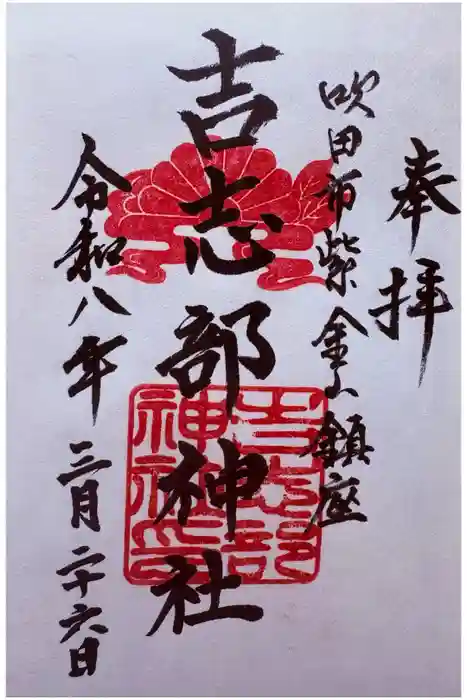 奉拝
吹田市紫金山鎮座
吉志部神社
吉志部
神社印
令和八年三月二十六日